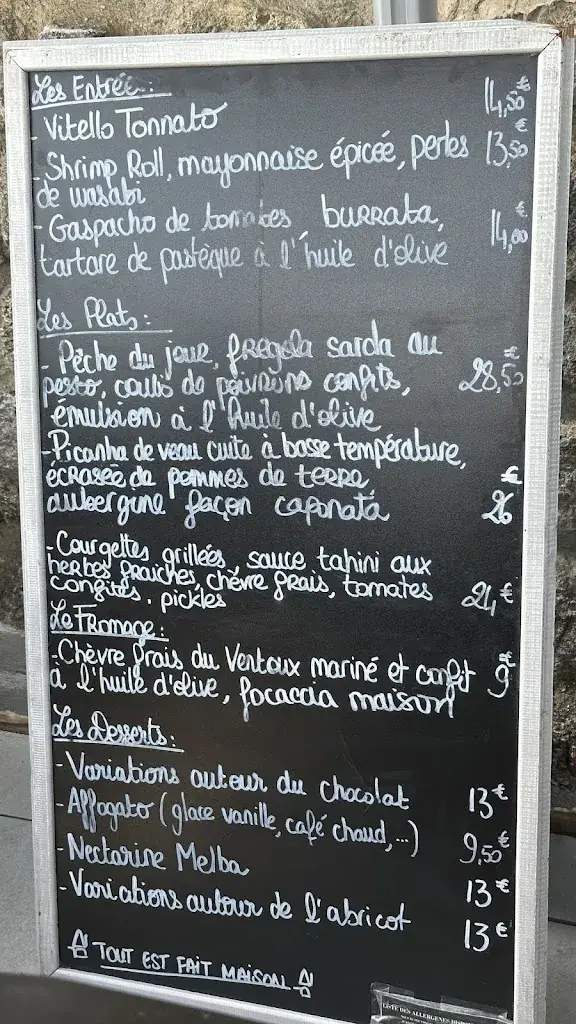 Les Entrées :
- Vitello Tonnato 14,50€
- Shrimp Roll, mayonnaise épicée, perles 13,50€
de wasabi
- Gaspacho de tomates burrata,
tartare de pastèque à l'huile d'olive 14,00€
Les Plats :
- Pêche du jour, fregola sarda au
pesto, coulis de poivrons confits, 28,50€
émulsion à l'huile d'olive
- Picanha de veau cuite à basse température,
écrasée de pommes de terre
aubergine façon caponata 26€
- Courgettes grillées, sauce tahini aux
herbes fraiches, chèvre frais, tomates 24,€
confites, pickles
Le Fromage :
- Chèvre frais du Ventoux mariné et confit 9€
à l'huile d'olive, focaccia maison
Les Desserts :
- Variations autour du chocolat 13€
- Affogato (glace vanille, café chaud,...) 9,50€
- Nectarine Melba 13€
- Variations autour de l'abricot 13€
TOUT EST FAIT MAISON
LISTE DES ALLERGENES